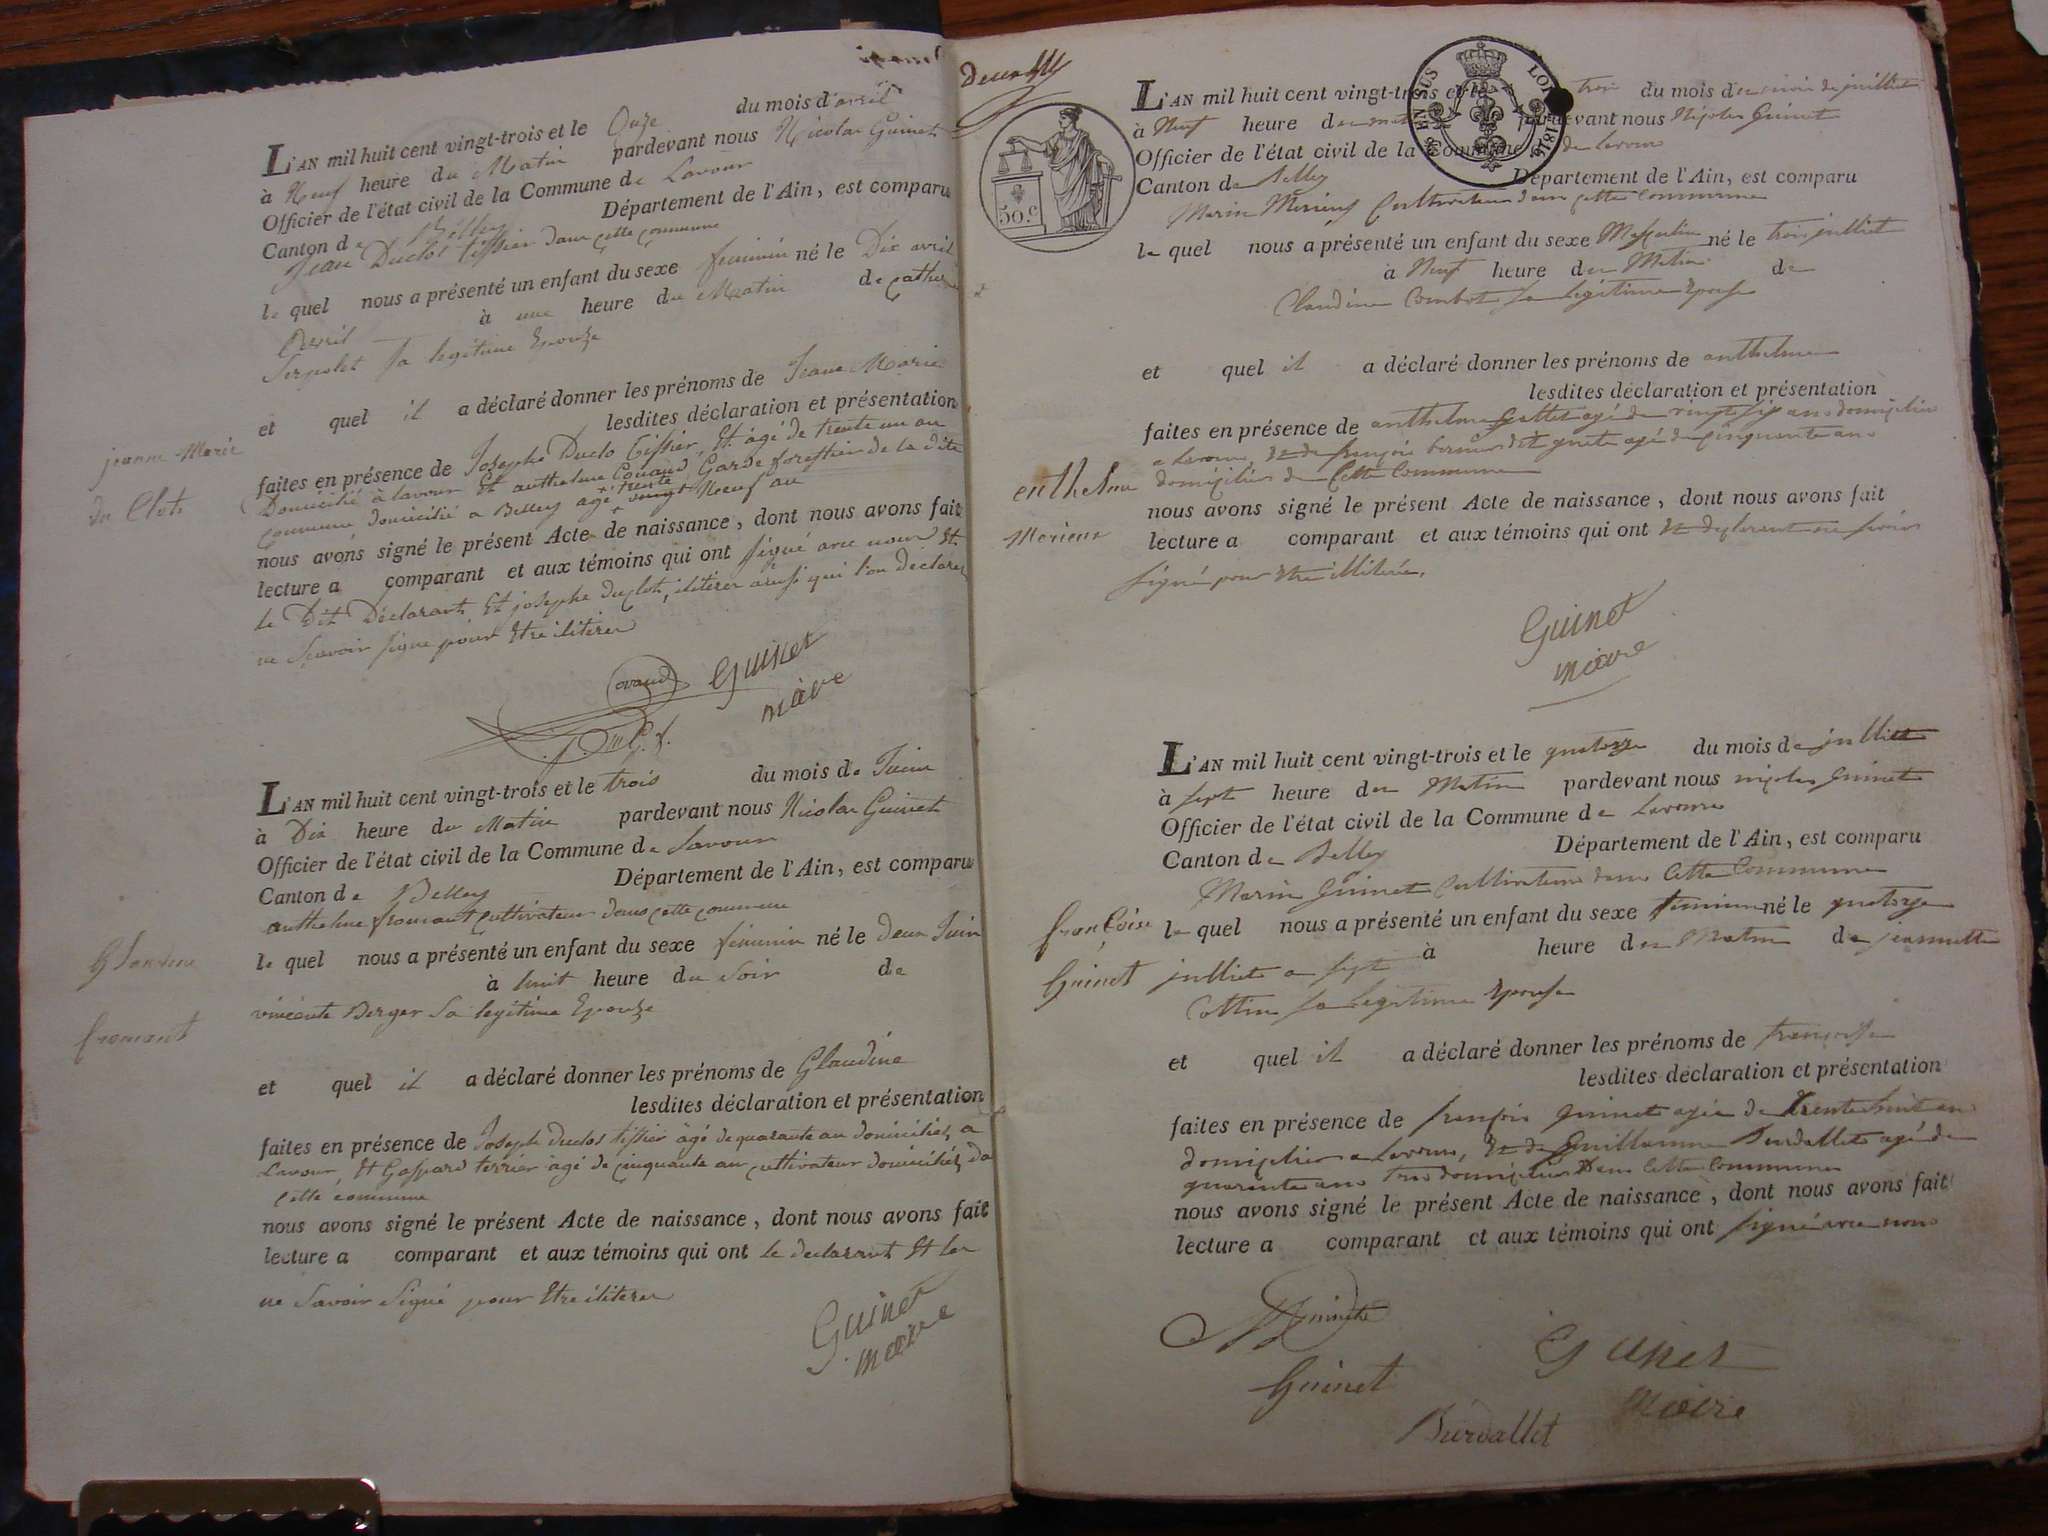 L'AN mil huit cent vingt-trois et le Onze du mois d'avril
à Neuf heure du Matin pardevant nous Nicolas Guinet
Officier de l'état civil de la Commune de Lavour
Canton de Belley Département de l'Ain, est comparu
Jean Duclot tissier dans cette commune
le quel nous a présenté un enfant du sexe feminin né le Dix avril
Avril à une heure du Matin de catherine
Serpolet Sa legitime Epouze
et quel il a déclaré donner les prénoms de Jeane Marie
lesdites déclaration et présentation
jeanne Marie
du Clots
faites en présence de Josephe Duclo tissier, Et âgé de trente un an
Domicilié à lavour Et anthelme Couaud Garde forestier de la dite
commune domicilié a Belley agé trente vingt Neuf an
nous avons signé le présent Acte de naissance, dont nous avons fait
lecture a comparant et aux témoins qui ont signé avec nous Et
le Dit Déclarant Et josephe duclot, iliterer aussi qui l'on declarer
ne Scavoir signe pour Etre iliterer
Guinet
maire
L'AN mil huit cent vingt-trois et le trois du mois de Juin
à Dix heure du Matin pardevant nous Nicolas Guinet
Officier de l'état civil de la Commune de Lavour
Canton de Belley Département de l'Ain, est comparu
anthelme fromant cultivateur dans cette commune
le quel nous a présenté un enfant du sexe féminin né le deux Juin
à huit heure du Soir de
vincente Berger Sa legitime Epouze
Glaudine
fromant
et quel il a déclaré donner les prénoms de Glaudine
lesdites déclaration et présentation
faites en présence de Joseph Duclos tissier âgé de quarante an domiciliés a
Lavour, Et Gaspard terrier âgé de cinquante an cultivateur domiciliés da
cette commune
nous avons signé le présent Acte de naissance, dont nous avons fait
lecture a comparant et aux témoins qui ont le declarant Et les
ne Savoir Signé pour Etre iliterer
Guinet
maire
50.c
EN SUS LOI 1816
L'AN mil huit cent vingt-trois et le trois du mois de juilliet
à Neuf heure du mat pardevant nous Nicolas Guinet
Officier de l'état civil de la Commune de Lavour
Canton de Belley Département de l'Ain, est comparu
Marin Merieux Cultivateur dans cette Commune
le quel nous a présenté un enfant du sexe Masculin né le trois juilliet
à Neuf heure du Matin de
Claudine Combet Sa legitime Epouse
et quel il a déclaré donner les prénoms de anthelme
lesdites déclaration et présentation
faites en présence de anthelme Gallet agé de vingt six ans domicilier
a Lavour, Et de françois agé de cinquante ans
domicilier de Cette Commune
enthelme
Merieux
nous avons signé le présent Acte de naissance, dont nous avons fait
lecture a comparant et aux témoins qui ont
signé pour Etre illiterée.
Guinet
maire
L'AN mil huit cent vingt-trois et le quatorze du mois de juilliet
à sept heure du Matin pardevant nous nicolas Guinet
Officier de l'état civil de la Commune de Lavour
Canton de Belley Département de l'Ain, est comparu
Marin Guinet Cultivateur dans Cette Commune
le quel nous a présenté un enfant du sexe feminin né le quatorze
juilliet a sept à heure du Matin de jeannette
Cottin Sa legitime Epouse
françoise
Guinet
et quel il a déclaré donner les prénoms de françoise
lesdites déclaration et présentation
faites en présence de françois Guinet agée de trente huit an
domicilier a Lavour, Et de Guillaume Burdallet agé de
quarente ans domicilier Dans Cette Commune
nous avons signé le présent Acte de naissance, dont nous avons fait
lecture a comparant et aux témoins qui ont signé avec nous
Guinet
Guinet
Maire
Burdallet